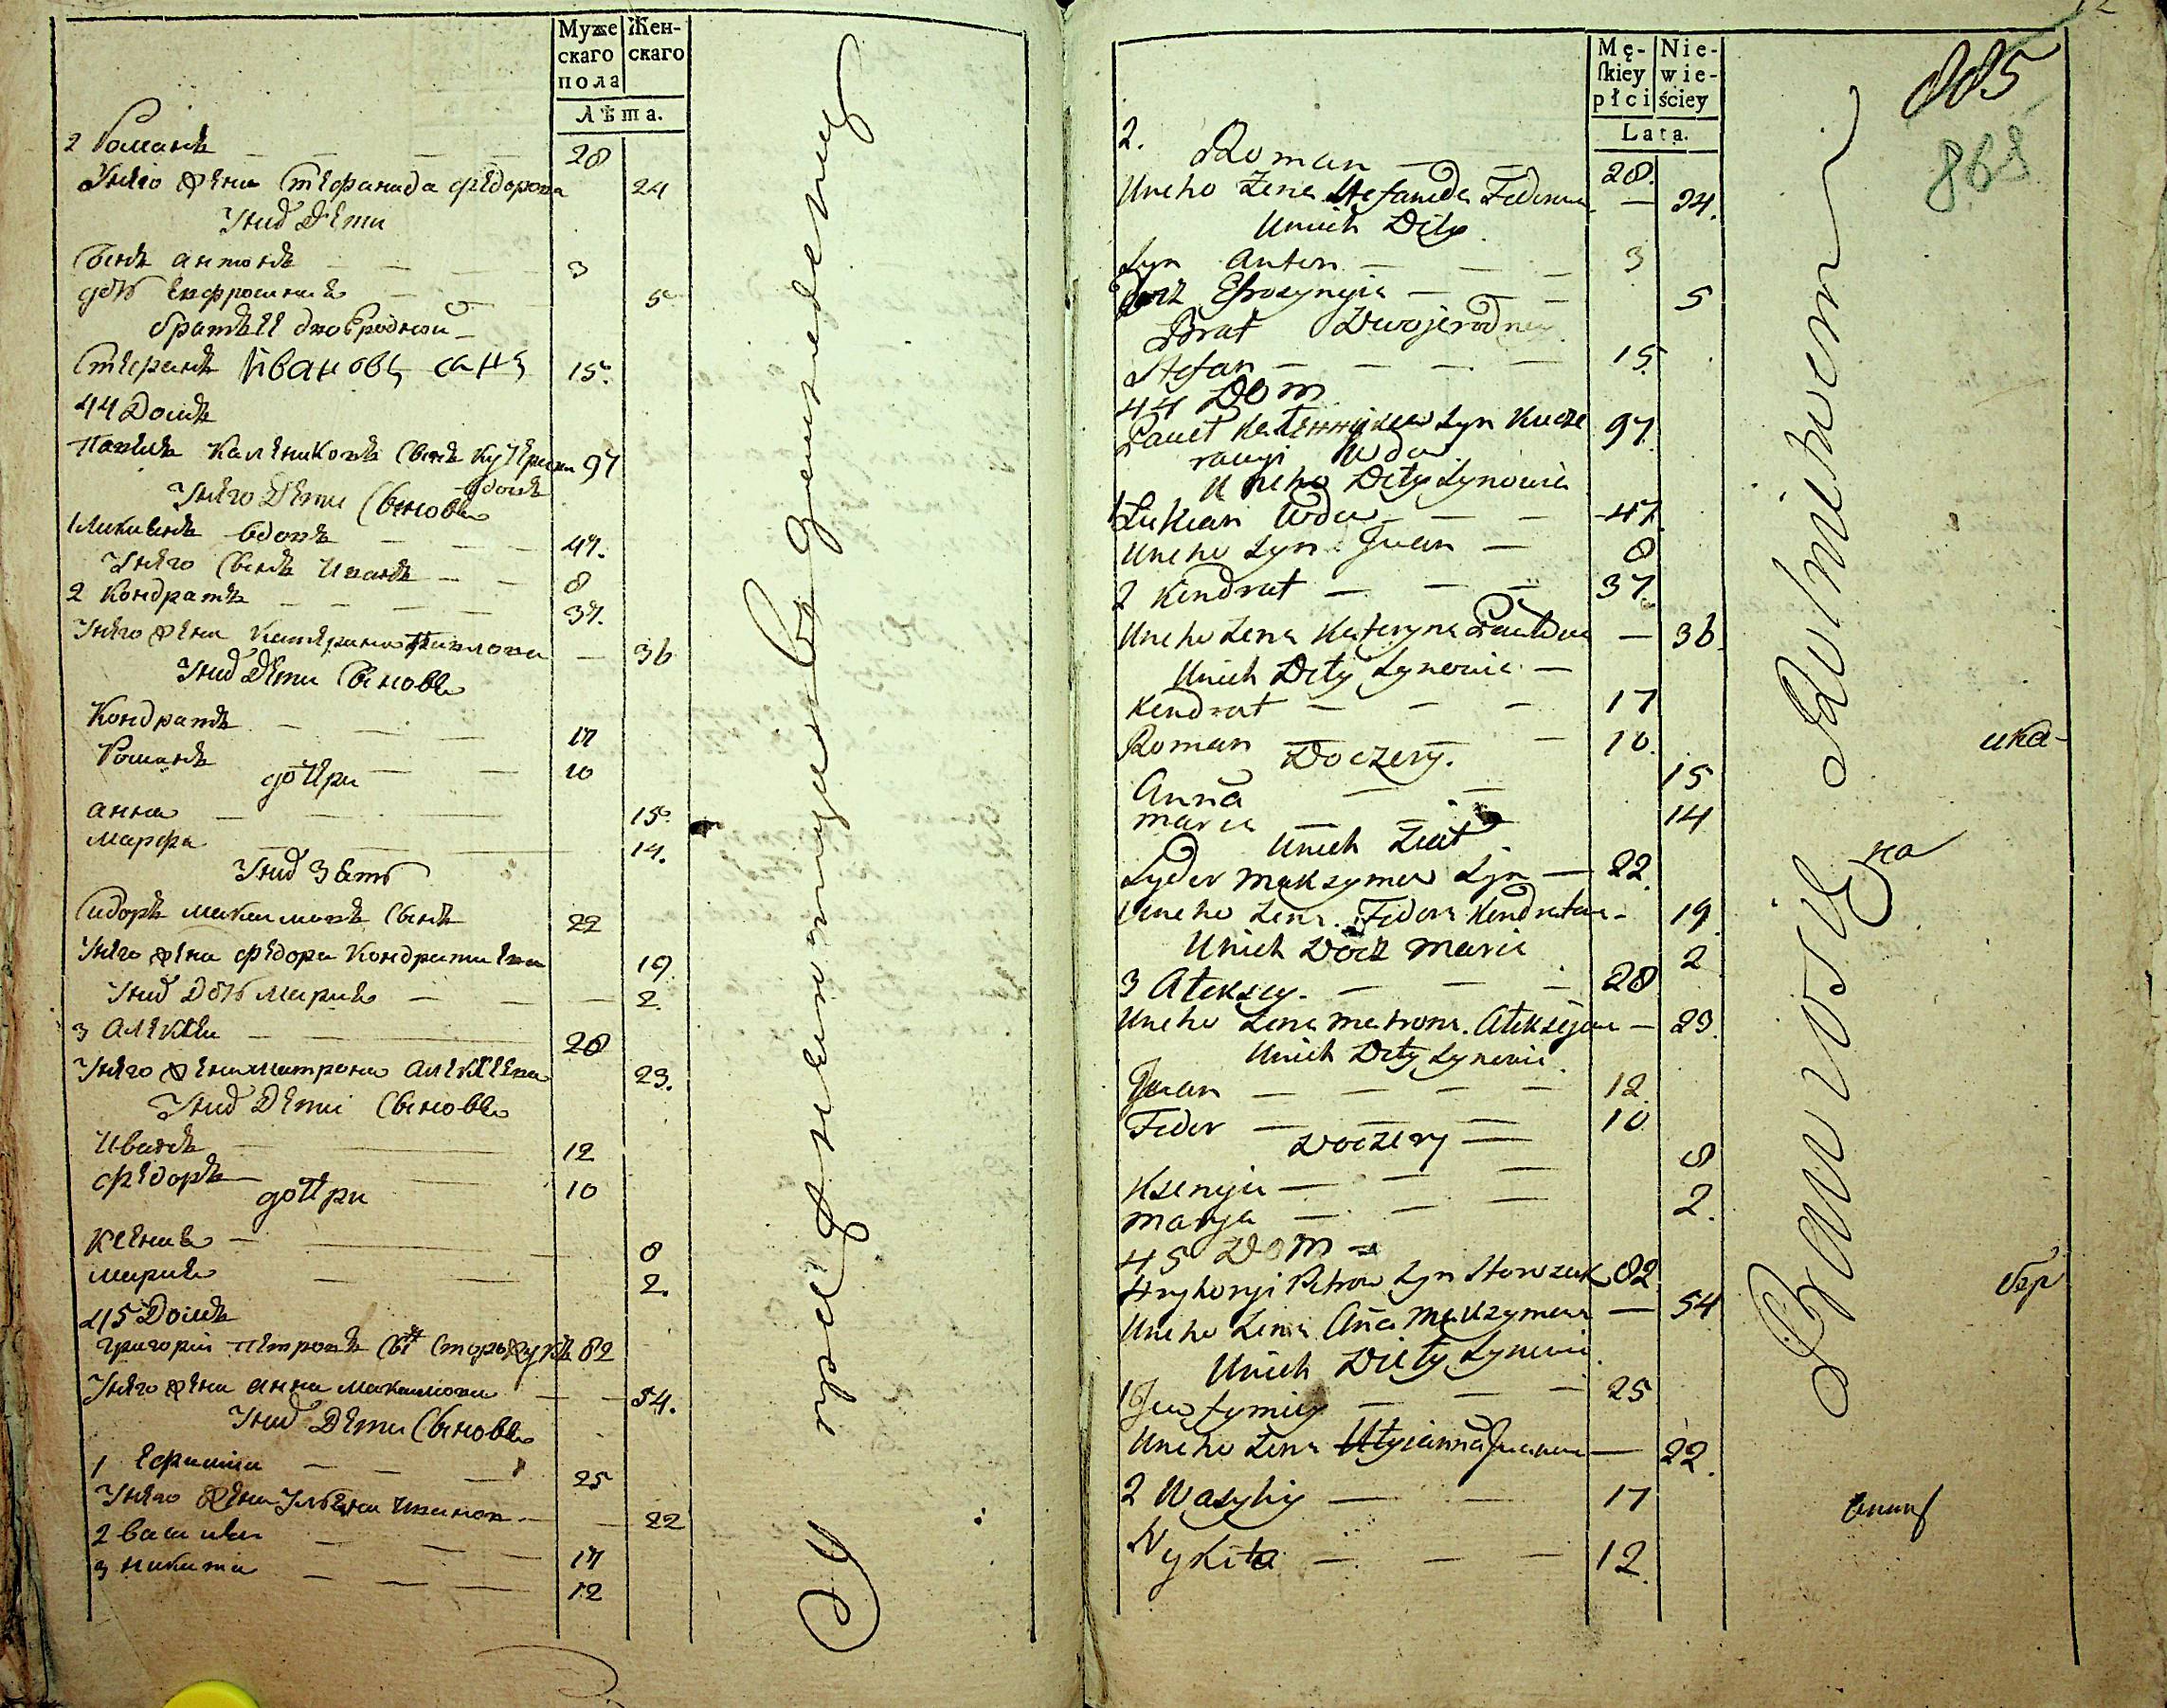 Муже Жен-
скаго скаго
пола
Лѣта.
2 Романъ — — — — 28
Унего жена Стефанида Федорова 24
Уних Дети
Сынъ Антонъ — — — 3
дочь Ефросиния — — 5
братъ ее двоюродный
Стефанъ Ивановъ сынъ 15.
44 Домъ
Павелъ Калениковъ Сынъ 97
вдовъ
Унего Дети Сыновья
1 Лукиянъ вдовъ — — — 47.
Унего Сынъ Иванъ — — 8
2 Кондратъ — — — — 37.
Унего жена Катерина Павлова — 36
Уних Дети Сыновья
Кондратъ — — — 17
Романъ — — 10
дочери
анна — — — 15.
марфа — — — 14.
Уних Зять
Сидоръ Максимовъ Сынъ 22
Унего жена Федора Кондратиева 19.
Уних Дочь Мария — — — 2.
3 Алексеи — — 28
Унего жена матрона Алексеева 23.
Уних Дети Сыновья
Иванъ — — 12
Федоръ — — 10
дочери
Ксения — — — 8
мария — — 2.
45 Домъ
Григорий Петровъ Сынъ 82
Унего жена анна Максимова — — 54.
Уних Дети Сыновья
1 Ефимий — — — 25
Унего жена Улияна Иванов. — — 22
2 Василий — — — 17
3 никита — — — 12
Mę- Nie-
ſkiey wie-
płci ściey
Lata.
885
868
2. Roman — — 28.
Uneho Żena Stefanida Fedorowa — 24.
Unich Dity
Syn Anton — — — 3
Docz Efrosynyia — — — 5
Brat Dwojerodney
Stefan — — — — 15.
44 Dom
Paweł Syn 97.
Wdow
Uneho Dity Synowia
1 Łukian Wdow — — — 47.
Uneho Syn Jwan — 8
2 Kindrat — — — 37.
Uneho Żena Kateryna Pawłowa — 36.
Unich Dity Synowie —
Kindrat — — — 17
Roman — — — 10.
Doczery.
Anna — — 15
maria — — — 14
Unich Ziat
Sydor Maksymow Syn — 22.
Uneho Żena Fedora Kindratowa — 19.
Unich Docz Maria 2
3 Ałeksey. — — — 28
Uneho Żena Matrona. Ałeksejowa — 23.
Unich Dity Synowie.
Jwan — — — — 12.
Fedor — — — 10
Doczery —
Ksenyia — — — 8
Marya — — — 2.
45 Dom
Hryhoryi Petrow Syn 82.
Uneho Żena Anna Maksymowa — 54
Unich Dity Synowie
1 Jewfymiey — — — 25
Uneho Żena Ułyianna Jwanowa — 22.
2 Wasyliy — — 17
Nykita — — — 12.